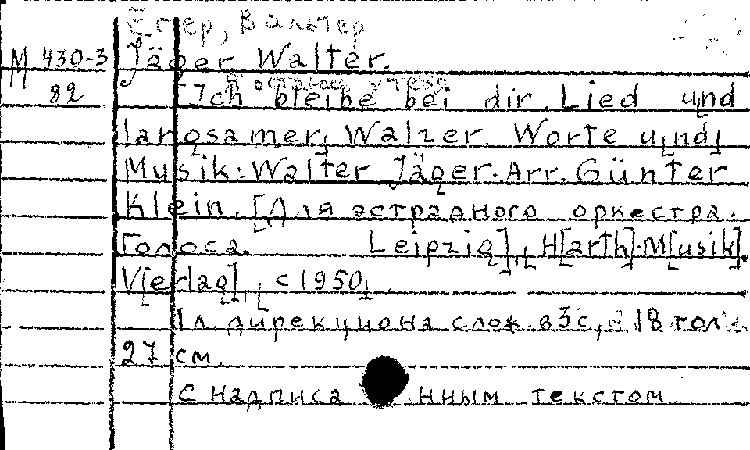 Егер, Вальтер
М 430-3 Jäger Walter.
82 [Ich bleibe bei dir. Lied und
langsamer, Walzer. Worte u[nd]
Musik: Walter Jäger. Arr. Günter
Klein. [Для эстрадного оркестра.
Голоса. Leipzig], H[arth]-M[usik].
V[erlag], [c 1950].
1 л. дирекциона слож. в 3 с., 18 гол.
27 см.
С надписанным текстом